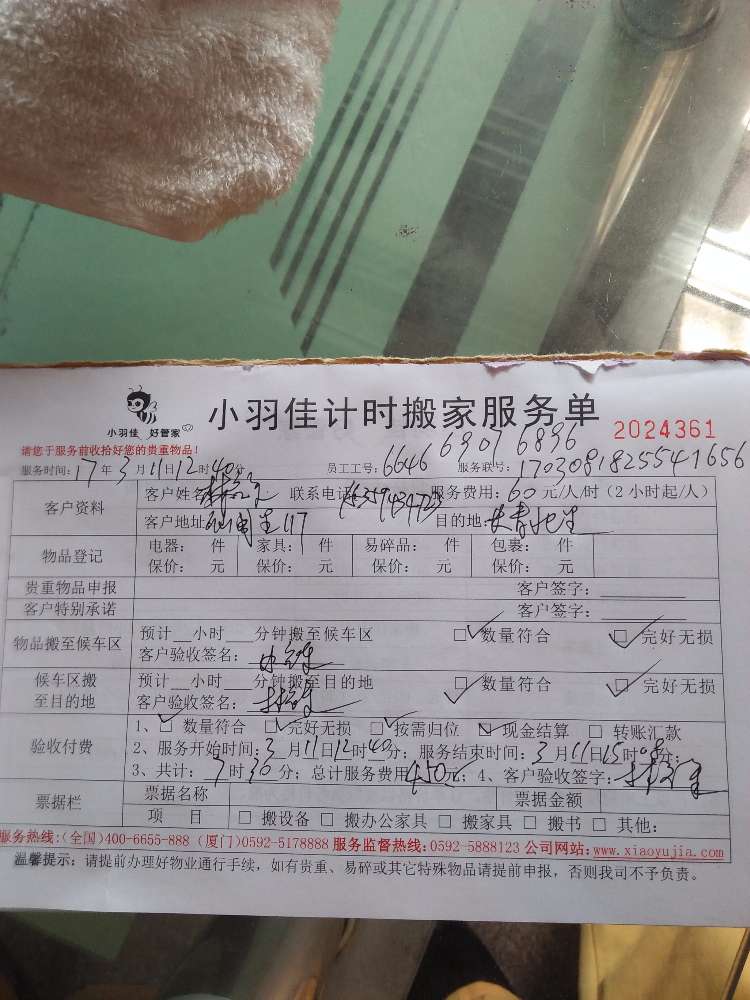 小羽佳 好管家
小羽佳计时搬家服务单
2024361
请您于服务前收拾好您的贵重物品!
服务时间:17年3月11日12时40分 员工工号:6646 6907 6896 服务联号:1703081825541656
客户资料
客户姓名 联系电话 服务费用:60元/人/时(2小时起/人)
客户地址 目的地:
物品登记
电器: 件 家具: 件 易碎品: 件 包裹: 件
保价: 元 保价: 元 保价: 元 保价: 元
贵重物品申报 客户签字:
客户特别承诺 客户签字:
物品搬至候车区
预计__小时__分钟搬至候车区 □数量符合 □完好无损
客户验收签名:
候车区搬至目的地
预计__小时__分钟搬至目的地 □数量符合 □完好无损
客户验收签名:
验收付费
1、□数量符合 □完好无损 □按需归位 □现金结算 □转账汇款
2、服务开始时间:3月11日12时40分;服务结束时间:3月11日15时08分;
3、共计:7时30分;总计服务费用450元;4、客户验收签字:
票据栏
票据名称 票据金额
项 目 □搬设备 □搬办公家具 □搬家具 □搬书 □其他:
服务热线:(全国)400-6655-888 (厦门)0592-5178888 服务监督热线:0592-5888123 公司网站:www.xiaoyujia.com
温馨提示:请提前办理好物业通行手续,如有贵重、易碎或其它特殊物品请提前申报,否则我司不予负责。